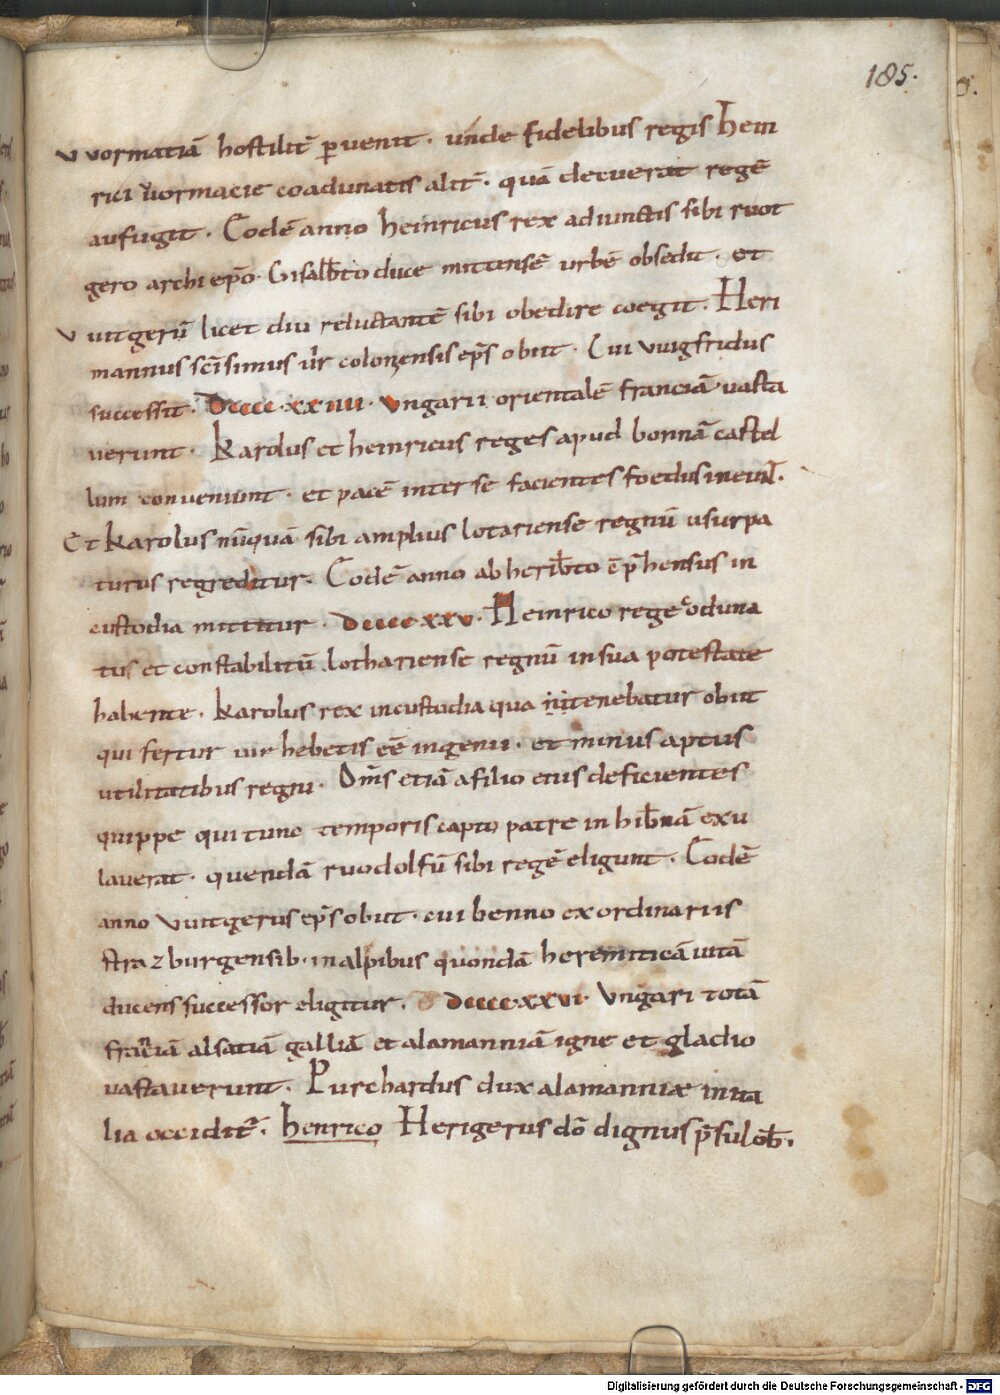 185.
vvormatiā hostilit̄ ꝑvenit · unde fidelibus regis Hein
rici vvormacie coadunatis alit̄ · quā decuerat regē
aufugit · Eodē anno heinricus rex adiunctis sibi ruot
gero archiep̄o · Gisalb̄to duce mittensē urbē obsedit · et
vvitgerū licet diu reluctantē sibi obedire coegit · Heri
mannus sc̄issimus vir coloniensis ep̄s obiit · Cui vvigfridus
successit · Dcccc·xxiiii · Ungarii orientalē franciā vasta
verunt · Karolus et heinricus reges apud bonnā castel
lum conveniunt · et pacē inter se facientes foedus ineunt̄ .
Et karolus nūquā sibi amplius lotariense regnū usurpa
turus regreditur · Eodē anno ab herib̄to cōp̄hensus in
custodia mittitur · Dcccc·xxv · Heinrico rege coduna
tus et constabilitū lothariense regnū in sua potestate
habente · Karolus rex in custodia qua tenebatur obiit
qui fertur vir hebetis eē ingenii · et minus aptus
utilitatibus regni · Om̄s etiā a filio eius deficientes
quippe qui tunc temporis capto patre in hib̄niā exu
laverat · quendā ruodolfū sibi regē eligunt · Eodē
anno vvitgerus ep̄s obiit · cui benno ex ordinariis
strazburgensib · in alpibus quondā heremiticā vitā
ducens successor eligitur · Dcccc·xxvi · Ungari totā
franciā alsatiā galliā et alamanniā igne et gladio
vastaverunt · Purchardus dux alamanniæ in ita
lia occidit᷑ · henrico Herigerus dō dignus p̄sul ob̄ .
Digitalisierung gefördert durch die Deutsche Forschungsgemeinschaft - DFG